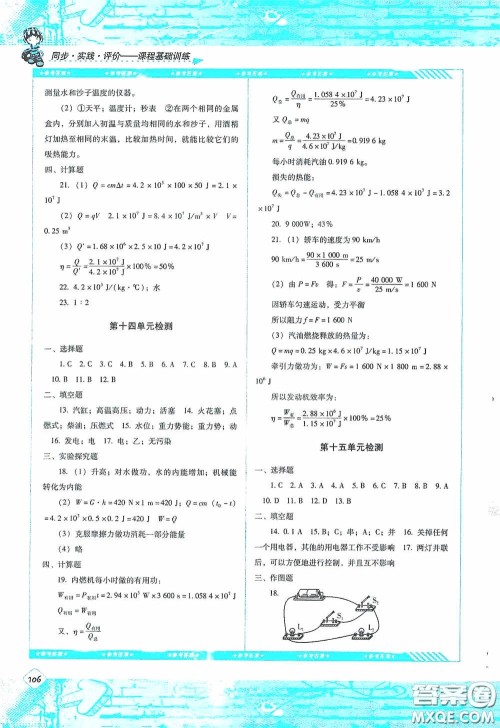 同步·实践·评价——课程基础训练
测量水和沙子温度的仪器。
(2) ①天平；温度计；秒表 ②在两个相同的金属
盒内，分别加入初温与质量相同的水和沙子，用酒精
灯加热至相同的末温，比较加热时间，就能比较它们的
吸热能力。
四、计算题
21. (1) Q=cmΔt=4.2×10³×100×50 J=2.1×
10⁷ J
(2) Q=qV 2.1×10⁷ J=8.4×10⁷ J/m³×V V=
0.25 m³
(3) Q′=1.68×10⁶×2.5×10⁴ J=4.2×10⁷ J
η=Q/Q′=2.1×10⁷ J/4.2×10⁷ J×100%=50%
22. 4.2×10³ J/(kg·℃)；水
23. 1∶2
第十四单元检测
一、选择题
1. C 2. C 3. C 4. B 5. B 6. B 7. B 8. B 9. A
10. B 11. B 12. B
二、填空题
13. 汽缸；高温高压；动力；活塞 14. 火花塞；点
燃式；柴油；压燃式 15. 水位；重力势能；重力势；动
16. 发电；电 17. 电；乙；无污染
三、实验探究题
18. (1) 升高；对水做功，水的内能增加；机械能
转化为内能
(2) W=G·h=420 N×1 m=420 J Q=cm(t₀-t)
=4.2×10³×0.5×0.2 J=420 J W=Q
(3) 克服摩擦力做功消耗一部分能量
(4) 略
四、计算题
19. 内燃机每小时做的有用功：
W有用=P有用t=2.94×10³ W×3 600 s=1.058 4×10⁷ J
又，η=Q有用/Q总
Q总=Q有用/η=1.058 4×10⁷ J/25%=4.23×10⁷ J
又 Q总=mq
m=Q总/q=4.23×10⁷ J/4.6×10⁷ J/kg=0.919 6 kg
每小时消耗汽油 0.919 6 kg。
损失的热能：
Q损=Q总-Q有用=4.23×10⁷ J-1.058 4×10⁷ J=3.17×
10⁷ J
20. 9 000W；43%
21. (1) 轿车的速度为 90 km/h
90 km/h=90×1 000 m/3 600 s=25 m/s
(2) 由 P=Fv 得：F=P/v=40 000 W/25 m/s=1 600 N
因轿车匀速运动，受力平衡
所以阻力 f=F=1 600 N
(3) 汽油燃烧释放的热量为：
Q=mq=0.25 kg×4.6×10⁷ J/kg=1.15×10⁷ J
牵引力做功为：W=Fs=1 600 N×1 800 m=2.88×
10⁶ J
所以发动机效率为：
η=W有/W总=2.88×10⁶ J/1.15×10⁷ J×100%=25%
第十五单元检测
一、选择题
1. C 2. D 3. C 4. C 5. D 6. A 7. B 8. C 9. A
10. D 11. D 12. D 13. B
二、填空题
14. 0.1 A 15. C；串；A；并 16. 关掉任何
一个用电器，其他的用电器工作不受影响 17. 两灯并
联后，可以方便地进行控制、并且互不影响
三、作图题
18.
S₂
L₁
L₂
S₁
106
答案圈
MXQE.COM